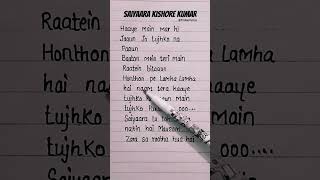 SAIYAARA KISHORE KUMAR
Haaye main mar hi
Jaaun Jo tujhko na
Paaun
Baaton mein teri main
Raatein bitaaun
Honthon pe lamha lamha
hai naam tera haaye
tujhko
main
tujhko
ooo....
Saiyaara tu
nahin hai Mausam
Zara sa rootha
hai